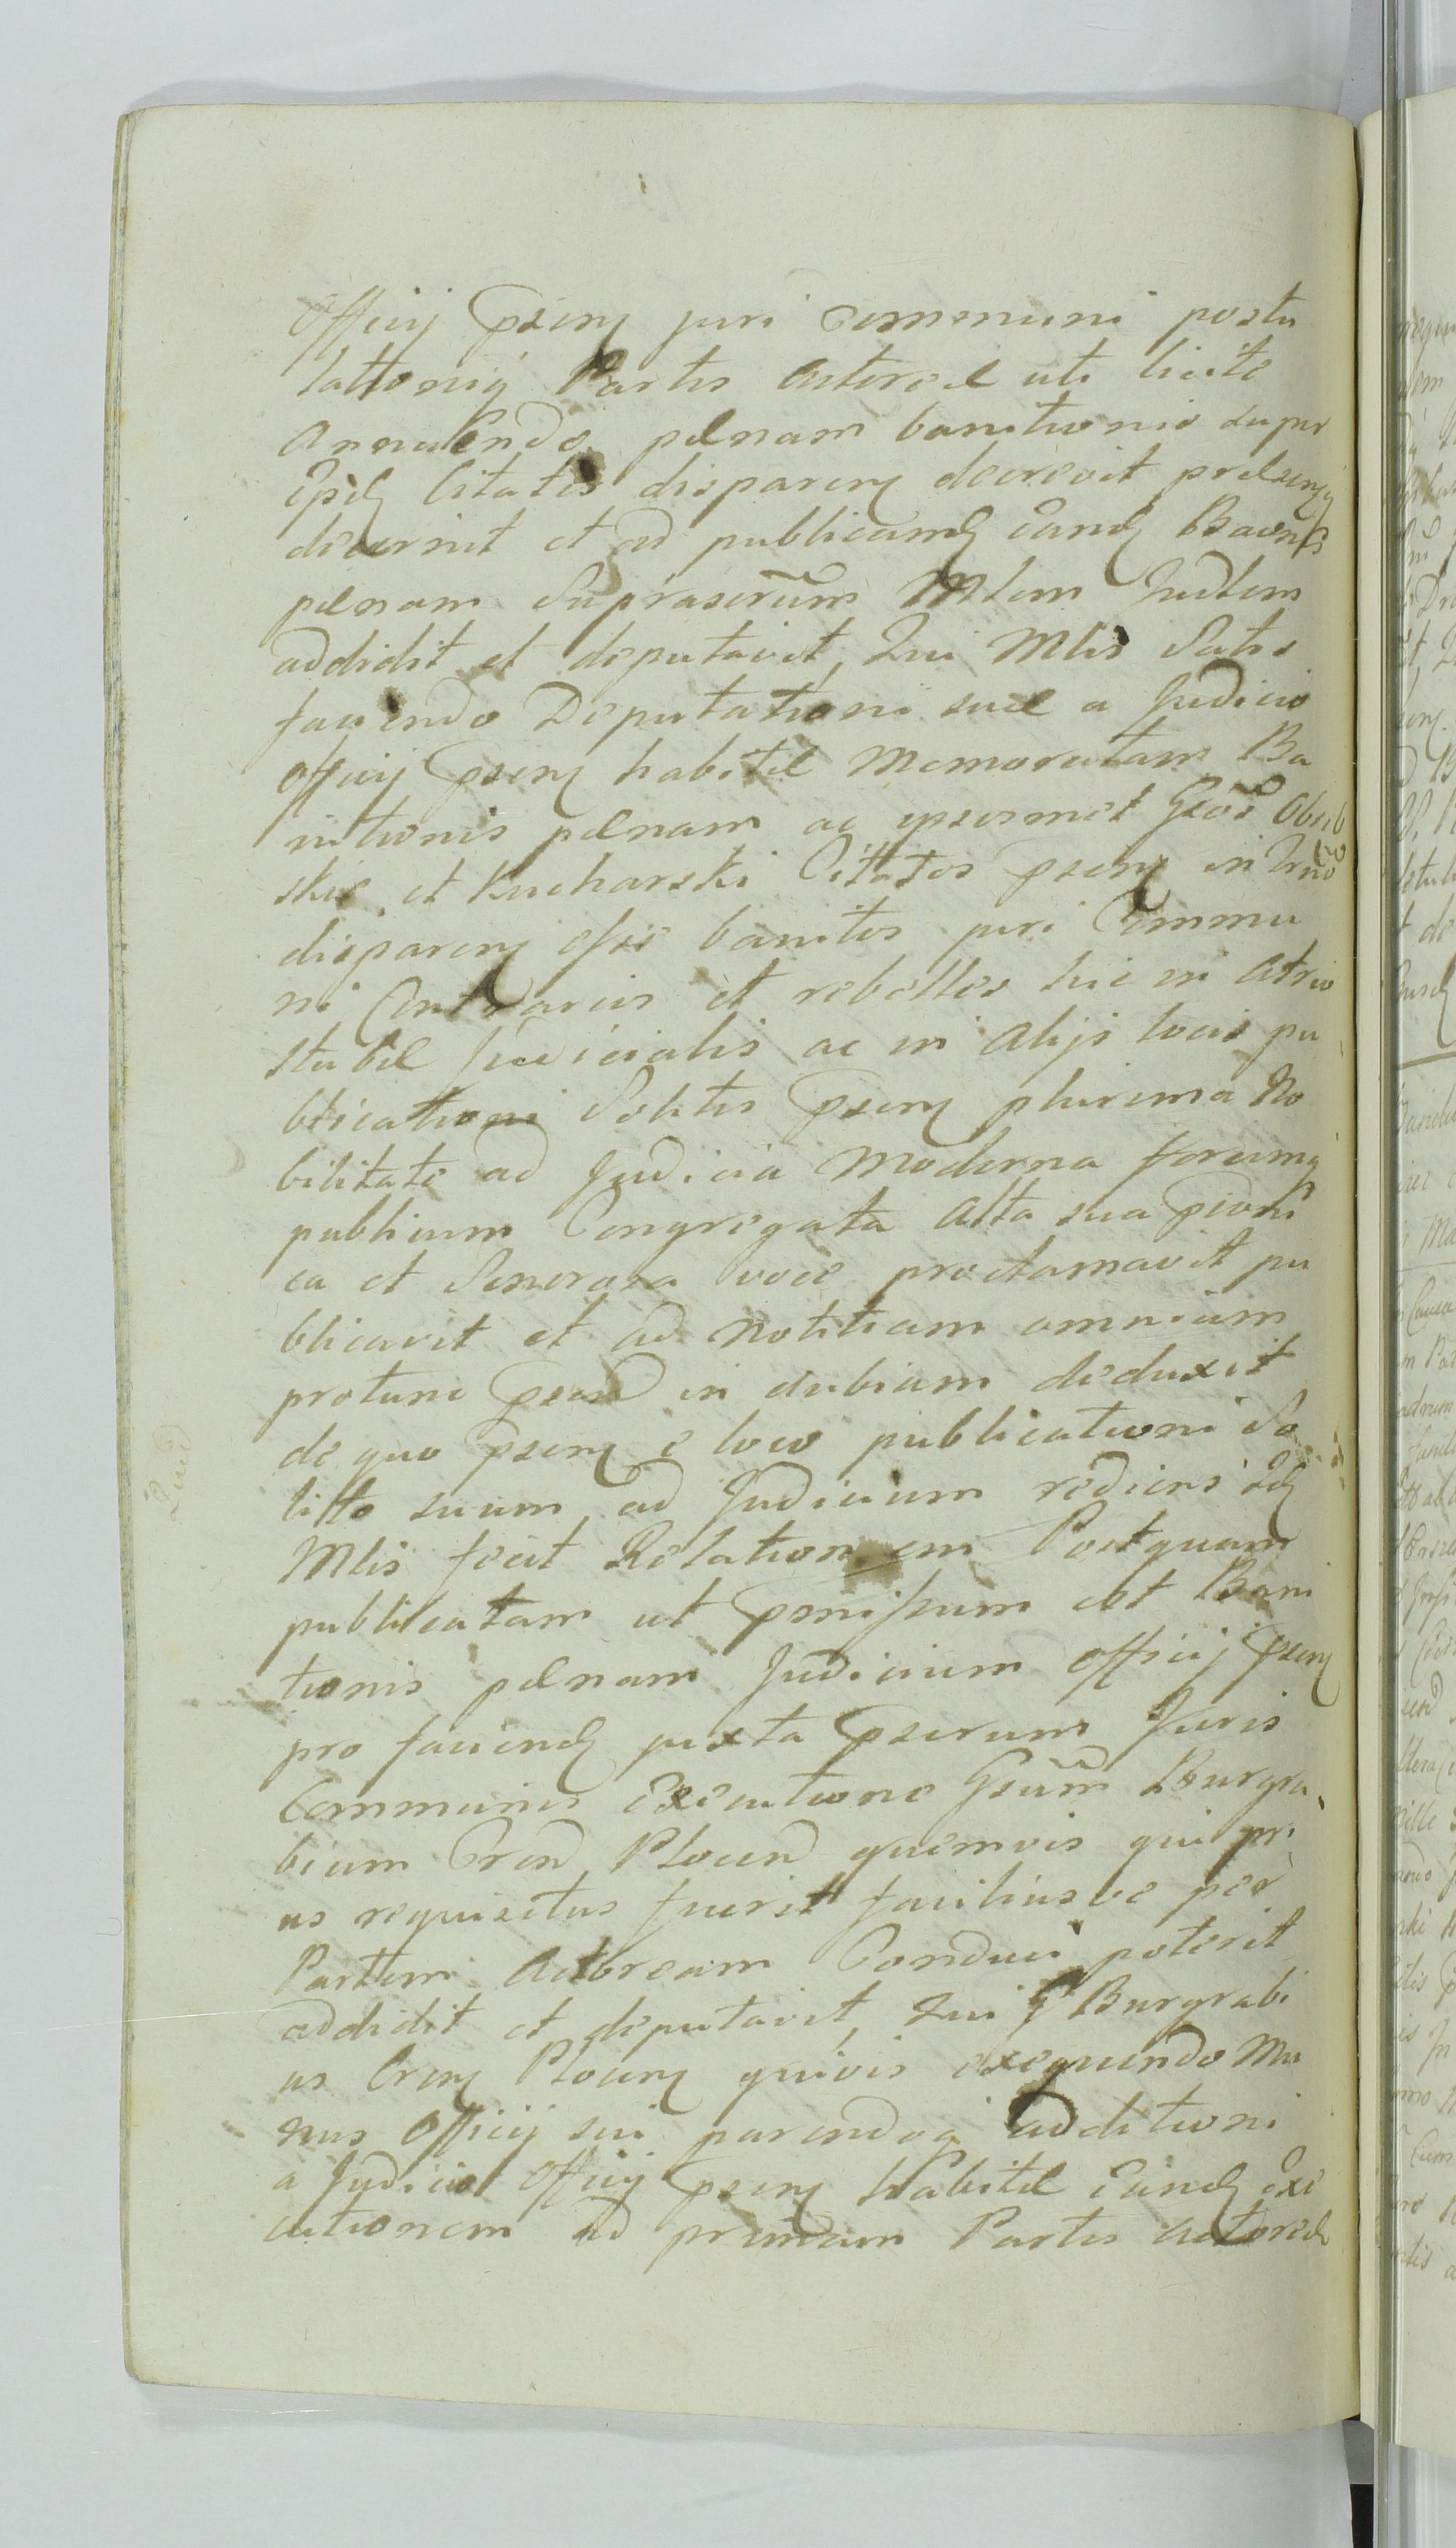 Officij psens juri Communi postu
lationiq Partis Actoreae uti licitae
Annuendo paenam banitionis super
Ipsis Citatis disparens decrevit praesensq
decernit et ad publicand eand Baonis
paenam Suprascrum Mlem Judlem
addidit et deputavit, Qui Mlis Satis
faciendo Deputationi suae a Judicio
Officij psens habitae Memoratam Ba
nitionis paenam ac ipsosmet Gsos
skie et Kucharski Citatos psens in Trno
disparens esse banitos juri Commu
ni Contrarios et rebelles hic in Atrio
stubae Judicialis ac in Alijs locis pu
blicationi Solitis psens plurima No
bilitate ad Judicia Moderna forumq
publicum Congregata Alta sua
ca et Sonorosa voce proclamavit pu
blicavit et ad notitiam omnium
protunc psen in dubium deduxit
de quo psens e loco publicationi So
lito suum ad Judicium rediens Idq
Mlis fecit Relationem Postquam
publicatam ut pmissum est Bani
tionis paenam Judicium Officij psens
pro faciend juxta pscrum Juris
Communis Executione Gsum Burgra
bium Cren Plocen quemvis qui pri
us requisitus fuerit faciliusve per
Partem Actoream Conduci poterit
addidit et deputavit, Qui G Burgrabi
us Crens Plocens quivis exequendo Mu
nus Officij sui parendoq additioni
a Judicio Officij psens habitae Eand Exe
cutionem ad pmendam Partis Actoreae